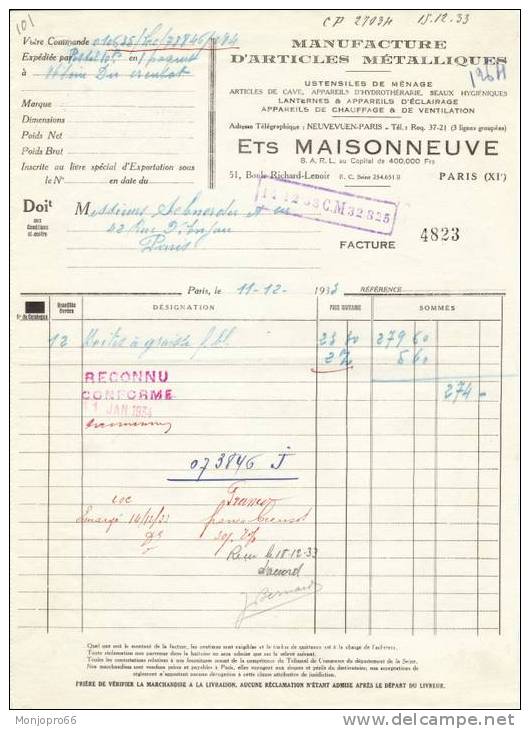 101
CP 27034 15.12.33
MANUFACTURE
D'ARTICLES MÉTALLIQUES
USTENSILES DE MÉNAGE
ARTICLES DE CAVE, APPAREILS D'HYDROTHÉRAPIE, SEAUX HYGIÉNIQUES
LANTERNES & APPAREILS D'ÉCLAIRAGE
APPAREILS DE CHAUFFAGE & DE VENTILATION
Adresse Télégraphique : NEUVEVUEN-PARIS - Tél. : Roq. 37-21 (3 lignes groupées)
ETS MAISONNEUVE
S. A. R. L. au Capital de 400.000 Frs
51, Boule Richard-Lenoir R. C. Seine 254.651 B PARIS (XIe)
Votre Commande
Expédiée par en 1 paquet
à Du Creusot
Marque
Dimensions
Poids Net
Poids Brut
Inscrite au livre spécial d'Exportation sous
le No en date du
14-12-33 C.M 32.325
Doit Messieurs Schneider et Cie
aux
Conditions
ci-contre
42 Rue d'Anjou
Paris
FACTURE 4823
Paris, le 11-12- 1933 RÉFÉRENCE
No du Catalogue Quantités livrées DÉSIGNATION PRIX UNITAIRE SOMMES
12 Boites à graisse 23 30 279 60
2% 5 60
274 -
RECONNU
CONFORME
11 JAN 1934
073846 J
Franco
Emargé 14/12/33 franco Creusot
Reçu le 18-12-33
d'accord
J Bernard
Quel que soit le montant de la facture, les centimes sont exigibles et le timbre de quittance est à la charge de l'acheteur.
Toute réclamation non parvenue dans la huitaine ne sera admise que sur le relevé suivant.
Toutes les contestations relatives à nos fournitures seront de la compétence du Tribunal de Commerce du département de la Seine.
Nos marchandises sont vendues prises et payables à Paris, elles voyagent aux risques et périls du destinataire, nos compositions de
règlement n'apportant aucune dérogation à cette clause attributive de juridiction.
PRIÈRE DE VÉRIFIER LA MARCHANDISE A LA LIVRAISON, AUCUNE RÉCLAMATION N'ÉTANT ADMISE APRÈS LE DÉPART DU LIVREUR.
Monjopro66
delcampe.net